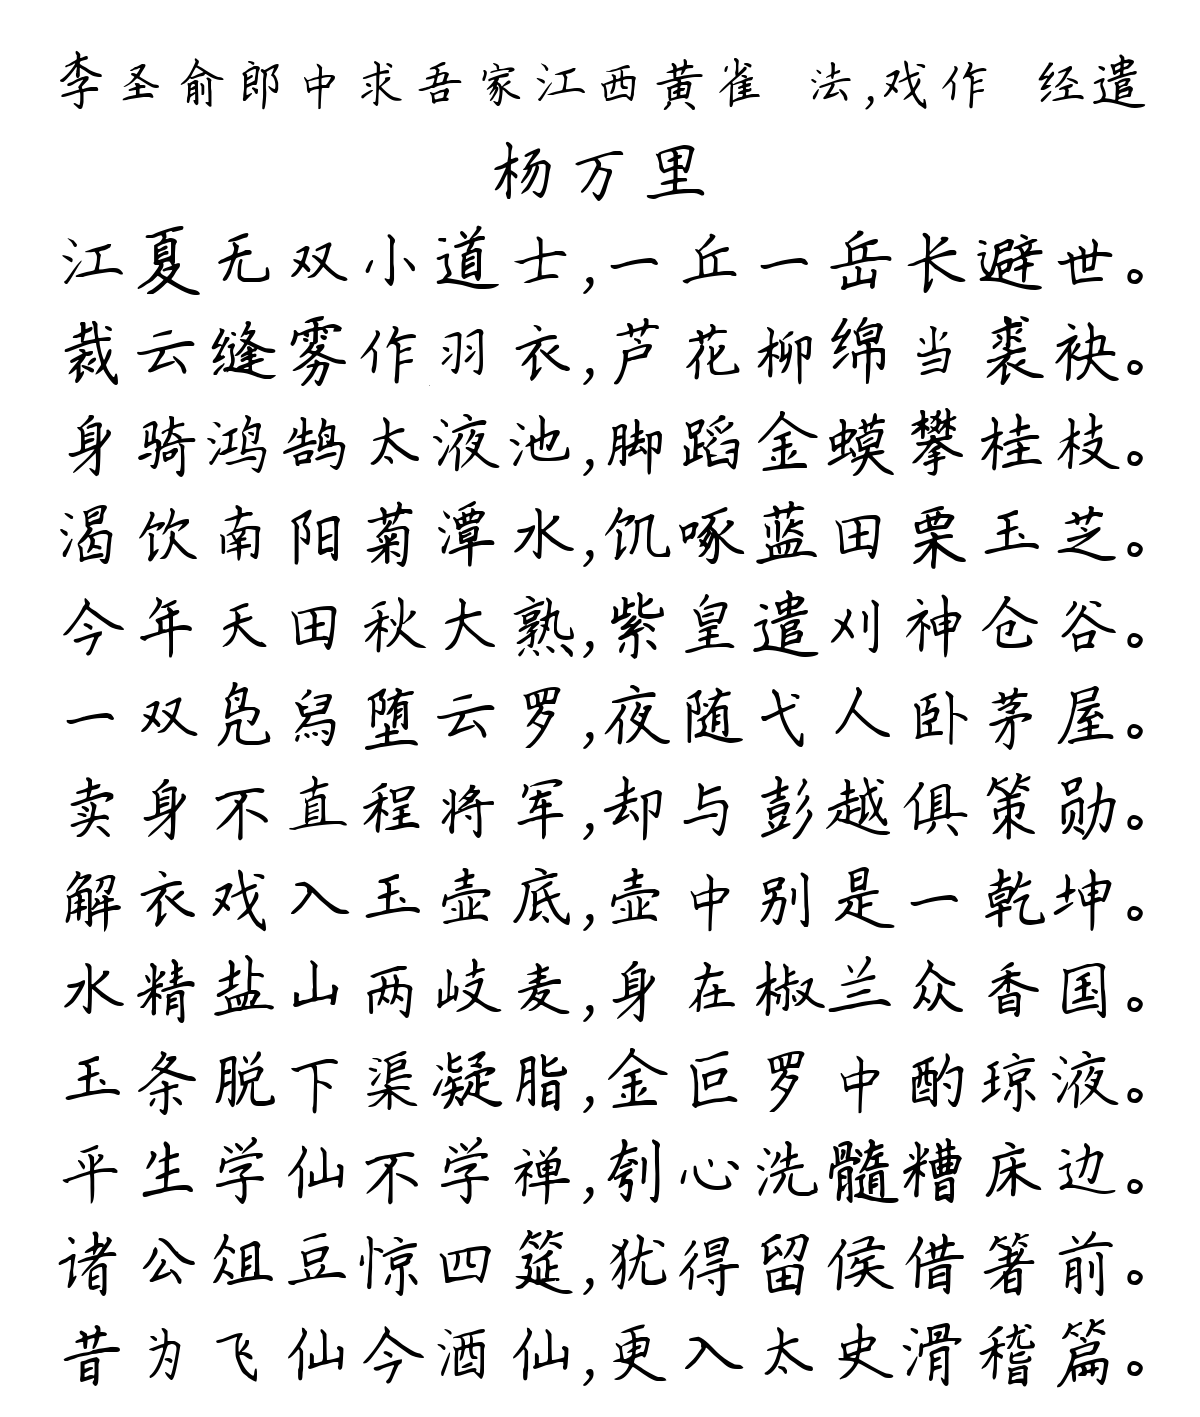 李圣俞郎中求吾家江西黄雀 法,戏作 经遣
杨万里
江夏无双小道士,一丘一岳长避世。
裁云缝雾作羽衣,芦花柳绵当裘袂。
身骑鸿鹄太液池,脚蹈金蟆攀桂枝。
渴饮南阳菊潭水,饥啄蓝田栗玉芝。
今年天田秋大熟,紫皇遣刈神仓谷。
一双凫舄堕云罗,夜随弋人卧茅屋。
卖身不直程将军,却与彭越俱策勋。
解衣戏入玉壶底,壶中别是一乾坤。
水精盐山两岐麦,身在椒兰众香国。
玉条脱下渠凝脂,金叵罗中酌琼液。
平生学仙不学禅,刳心洗髓糟床边。
诸公俎豆惊四筵,犹得留侯借箸前。
昔为飞仙今酒仙,更入太史滑稽篇。